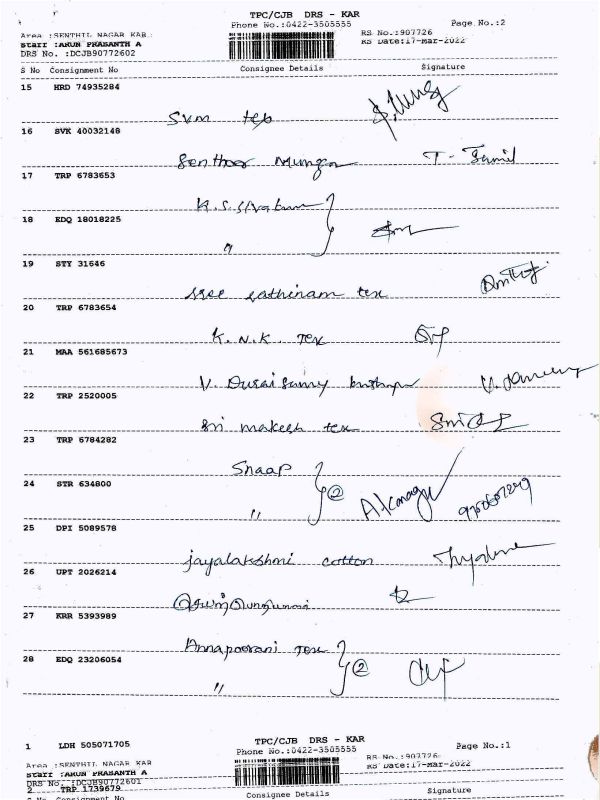 TPC/CJB DRS - KAR
Phone No.:0422-3505555
Page No.:2
Area :SENTHIL NAGAR KAR
RS No.:907726
Staff :ARUN PRASANTH A
RS Date:17-Mar-2022
DRS No. :DCJB90772602
S No Consignment No Consignee Details Signature
15 HRD 74935284
Svm tex
16 SVK 40032148
Senthoor Murugan T. Tamil
17 TRP 6783653
K.S. Sivakum
18 EDQ 18018225
"
19 STY 31646
sree rathinam tex
20 TRP 6783654
K.N.K. Tex
21 MAA 561685673
V. Duraisamy
22 TRP 2520005
Sri makesh tex
23 TRP 6784282
Snaap
24 STR 634800
" 2
25 DPI 5089578
jayalakshmi cotton
26 UPT 2026214
27 KRR 5393989
Annapoorani Tex
28 EDQ 23206054
" 2
TPC/CJB DRS - KAR
1 LDH 505071705
Phone No.:0422-3505555
Page No.:1
Area :SENTHIL NAGAR KAR
RS No.:907726
Staff :ARUN PRASANTH A
RS Date:17-Mar-2022
DRS No. :DCJB90772601
2 TRP 1739679
S No Consignment No Consignee Details Signature